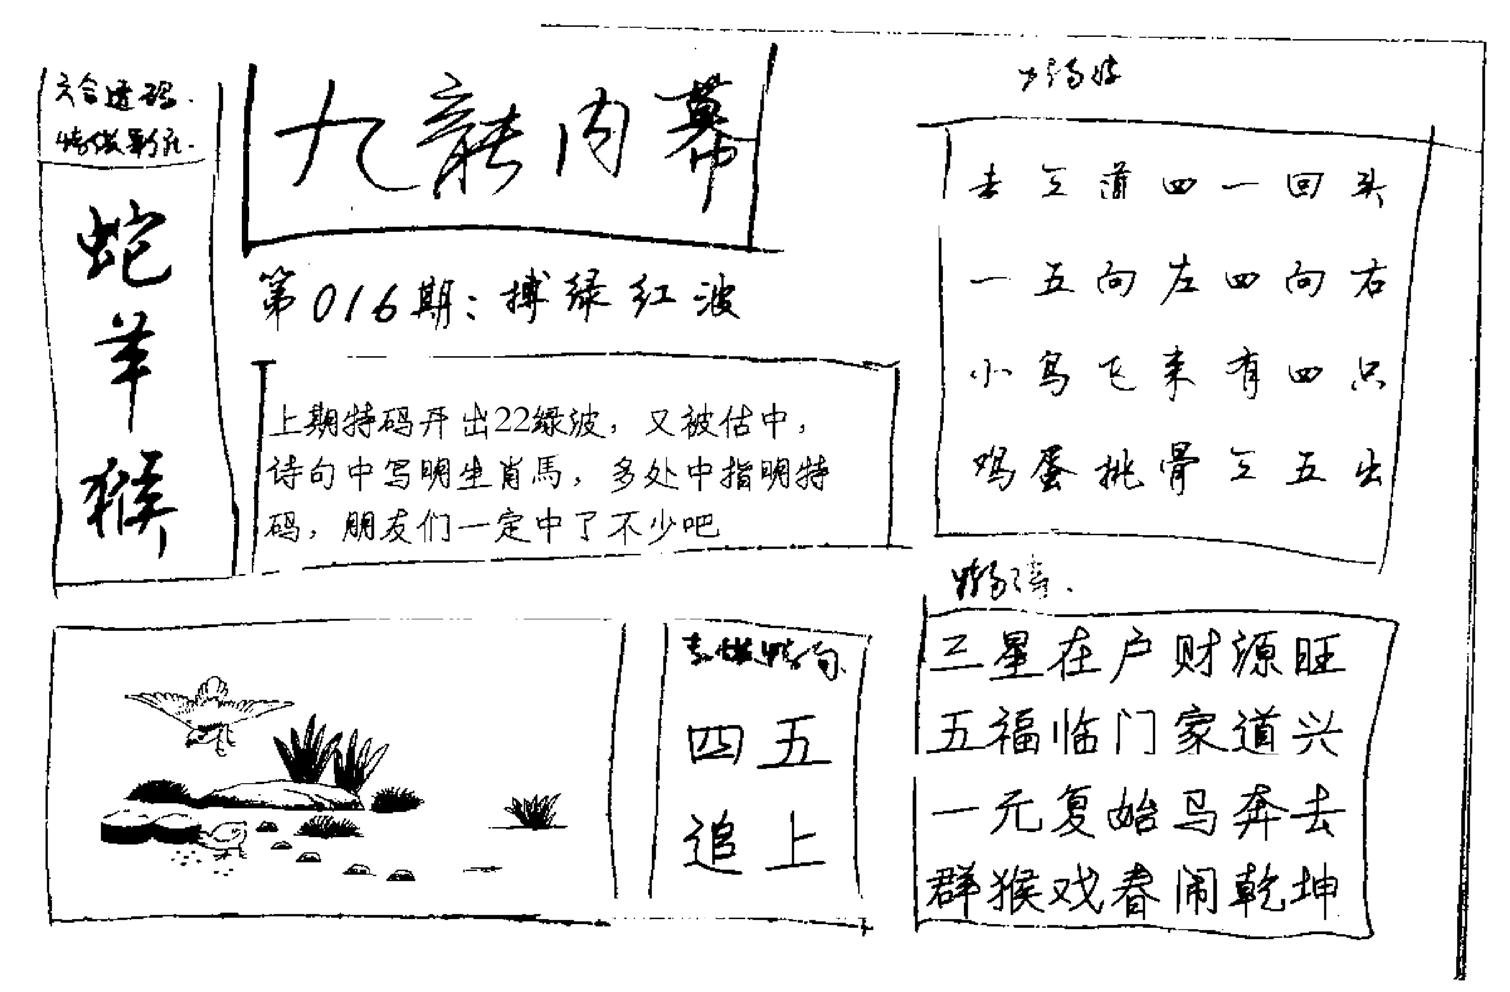 六合透码.
蛇
羊
猴
九龍内幕
第016期：搏绿红波
上期特码开出22绿波，又被估中，
诗句中写明生肖馬，多处中指明特
码，朋友们一定中了不少吧
去三道四一回头
一五向左四向右
小鸟飞来有四只
鸡蛋挑骨三五出
四五
追上
三星在户财源旺
五福临门家道兴
一元复始马奔去
群猴戏春闹乾坤